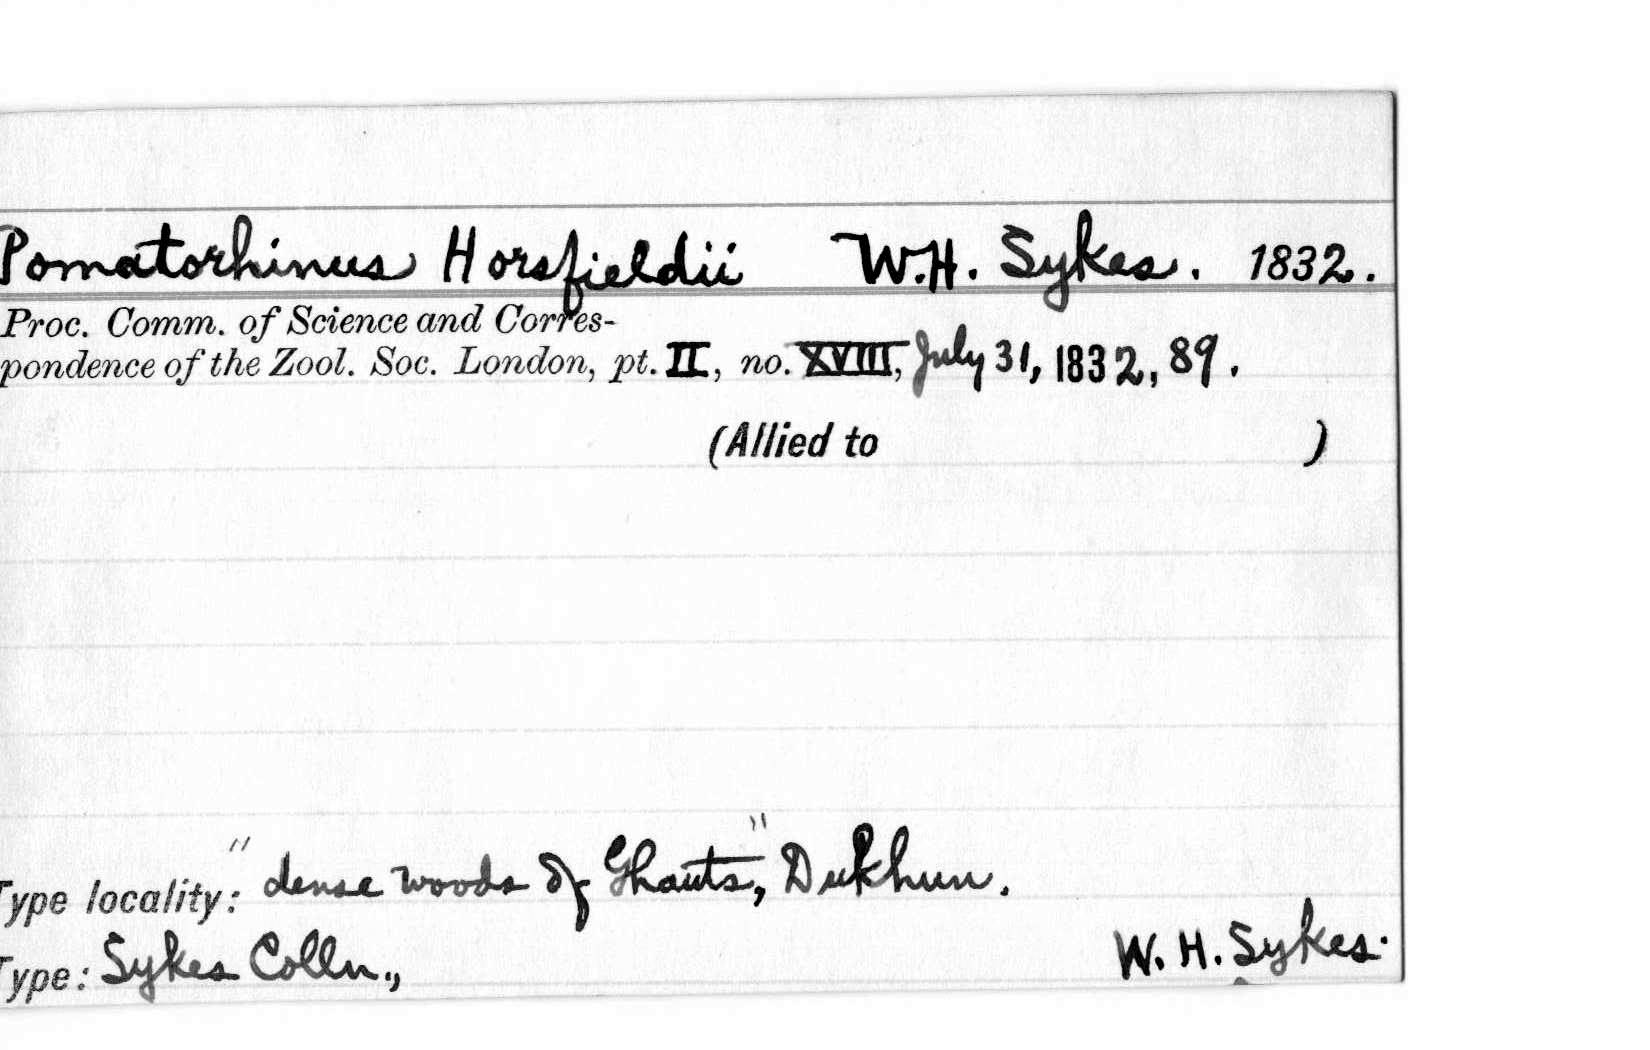 Pomatorhinus Horsfieldii W.H. Sykes. 1832.
Proc. Comm. of Science and Corres-
pondence of the Zool. Soc. London, pt. II, no. XVIII, July 31, 1832, 89.
(Allied to )
Type locality: "dense woods of Ghauts," Dukhun.
Type: Sykes Colln., W. H. Sykes.